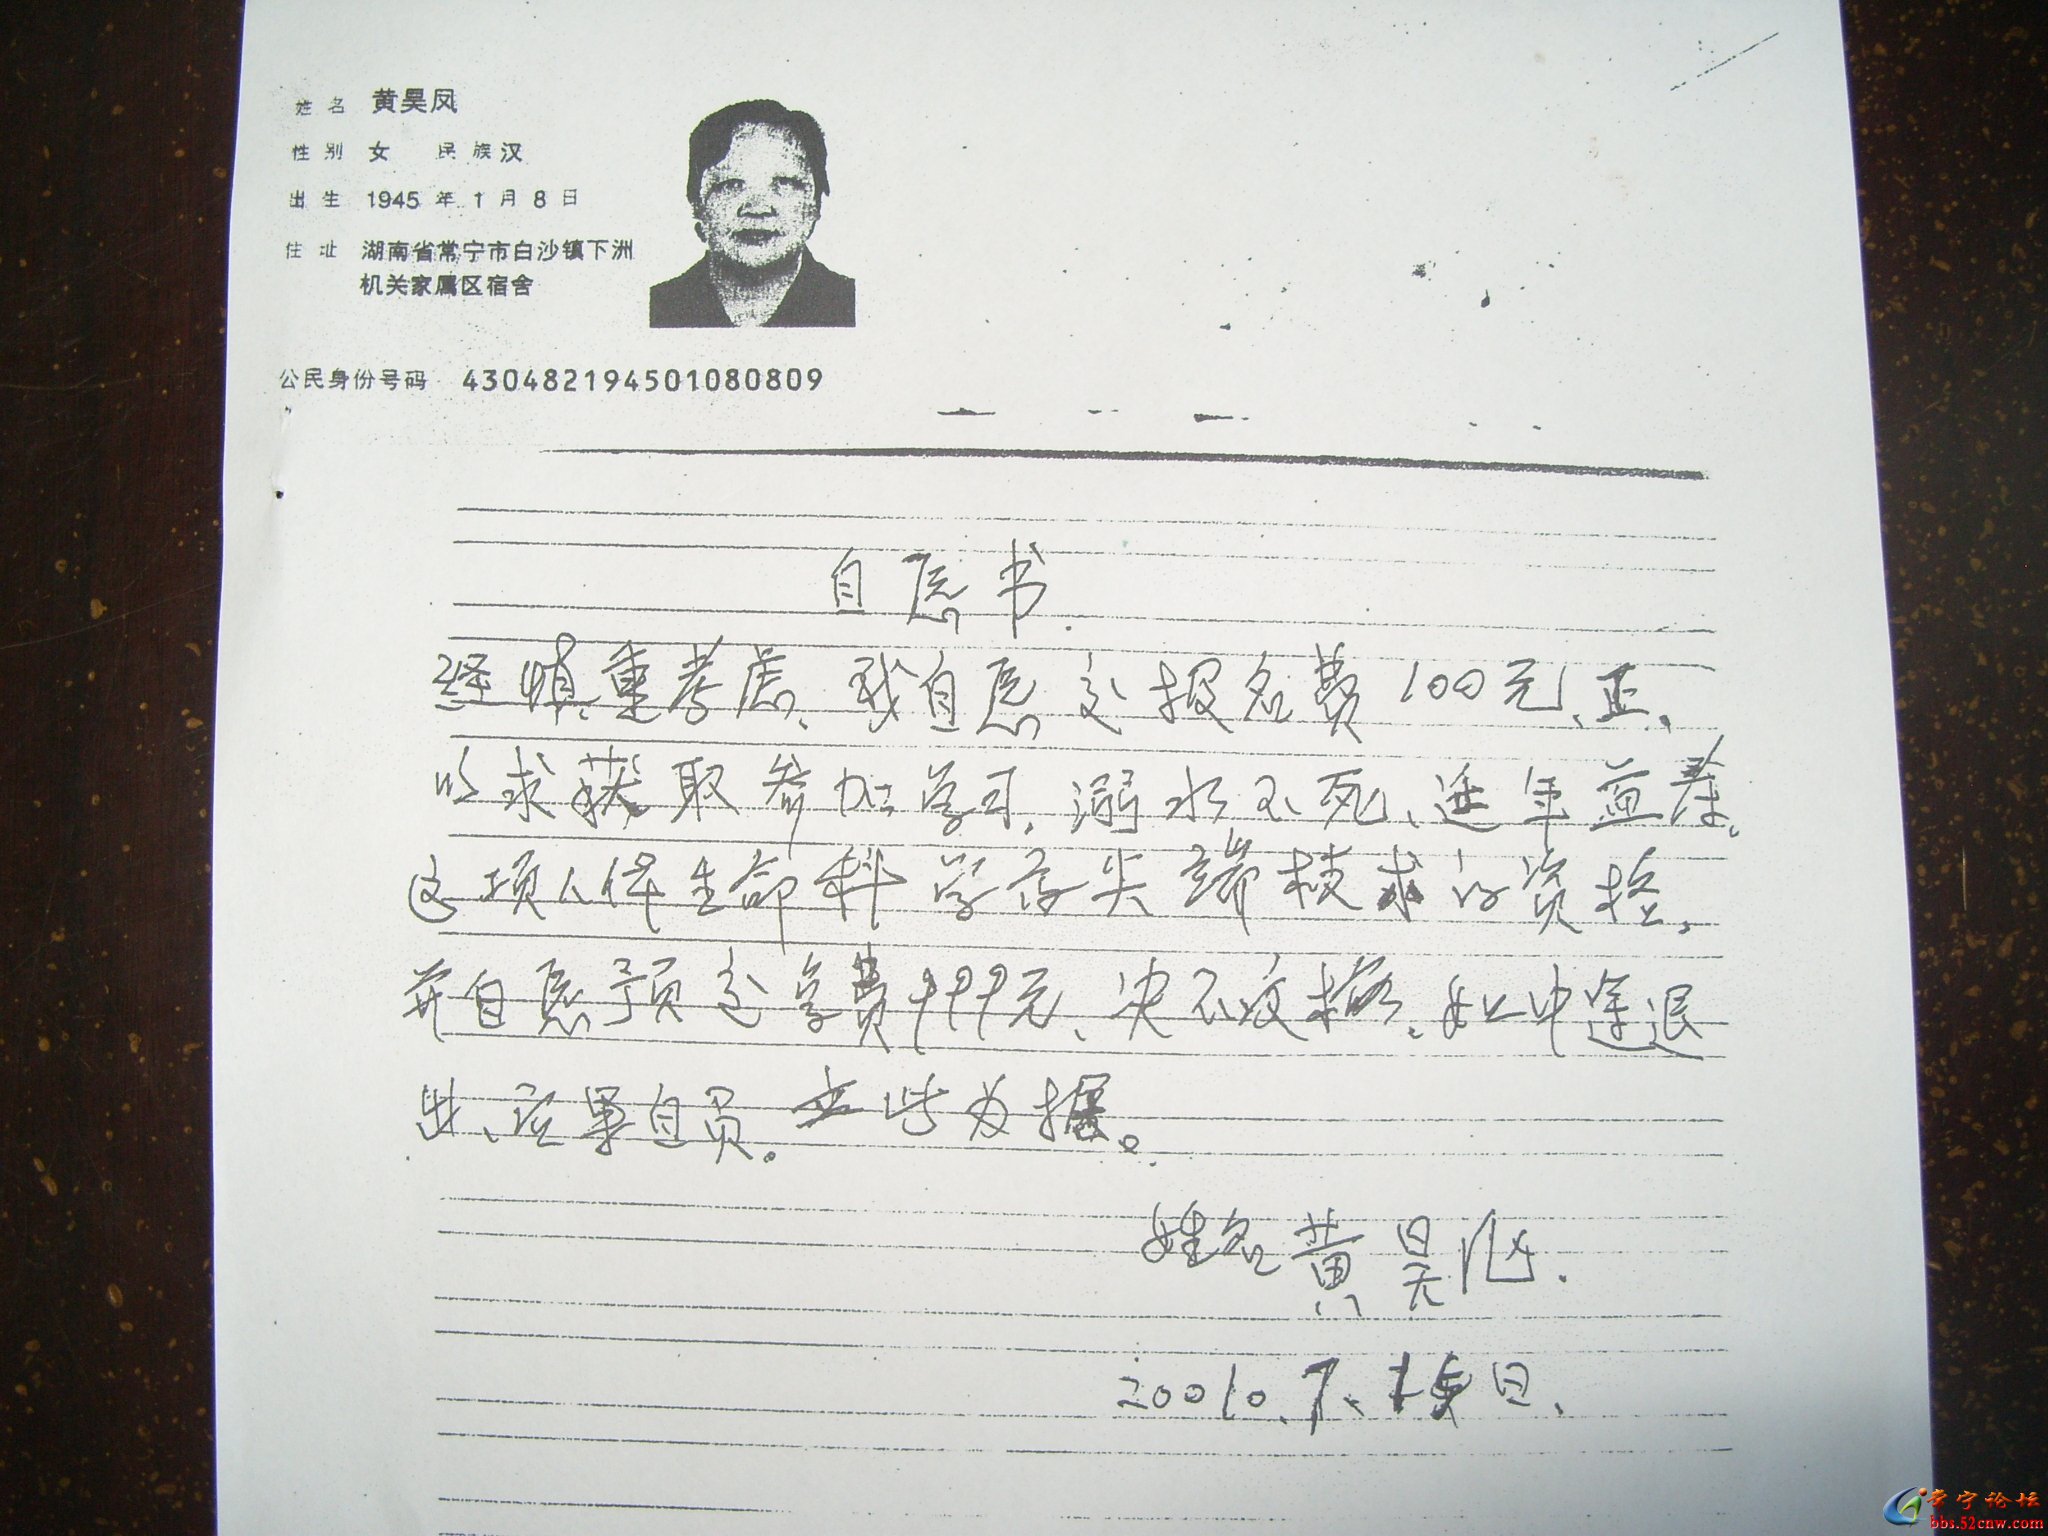 姓名 黄昊凤
性别 女 民族 汉
出生 1945 年 1 月 8 日
住址 湖南省常宁市白沙镇下洲
机关家属区宿舍
公民身份号码 430482194501080809
自愿书
经慎重考虑、我自愿交报名费100元、正、
以求获取参加学习,溺水不死、延年益寿,
这项人体生命科学 尖端技求的资格,
并自愿预交学费999元、决不反悔,如中途退
出、后果自负。立此为据。
姓名 黄昊
日
常宁论坛
bbs.52cnw.com